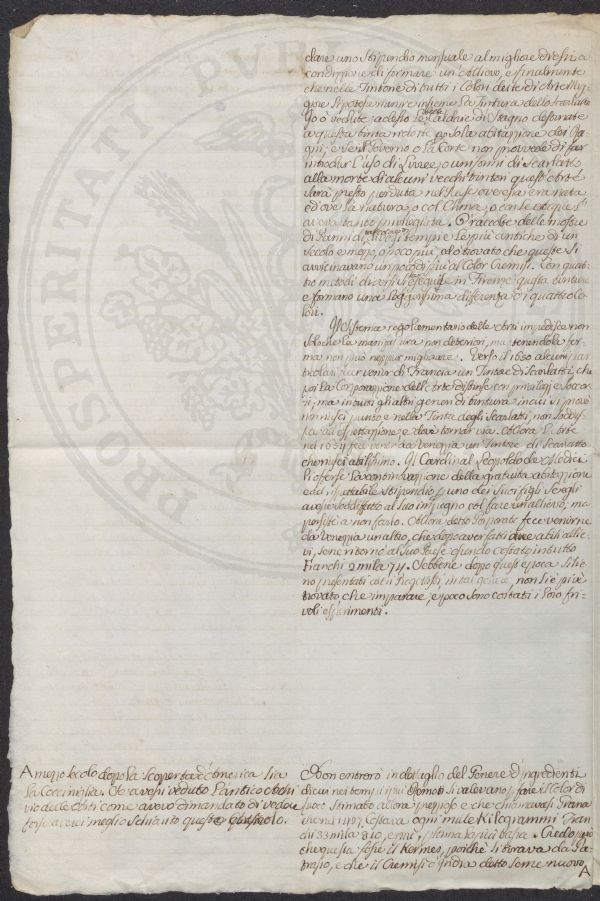 dare uno Stipendio mensuale al migliore di essi a
condizione di formare un Allievo, e finalmente
che nelle Tintorie di tutti i Colori dette di Arte Mag-
giore si potesse riunire insieme la tintura dello Scarlatto
Io ò vedute adesso le Caldaie di Stagno destinate
a questa tinta ridotte p sola abitazione dei Ra-
gni; e se il Governo o la Corte non provvede di far
introdur l'uso di Livree, o uniformi di Scarlatto
alla morte di alcuni vecchi tintori quest'Arte
sarà presto perduta nel Paese ov'essa era nata
ed ove la natura, o col Clima, o con le acque l'
aveva tanto privilegiata. O raccolte delle mostre
di Panni di diversi tempi le più antiche di un
secolo e mezzo, o poco più, ed ò trovato che queste si
avvicinavano un poco di più al Color Cremisi. Con quat-
tro metodi diversi si eseguisce in Firenze questa tintura
e formano una leggerissima differenza i quattro co-
lori.
Il sistema regolamentario delle Arti impedisce non
solo che la manifattura non deteriori, ma tenendola fer-
ma non può neppur migliorare. Verso il 1650 alcuni par-
ticolari fecer venir di Francia un Tintore di Scarlatti, che
poi la Corporazione dell'Arte distinse con privilegj e soccor-
si; ma in tutti gli altri generi di tintura in cui si provò
non riuscì punto e nella Tinta degli Scarlatti, non soddis-
fece all'espettazione e dové tornar via. Allora l'Arte
nel 1654 fece venir da Venezia un Tintore di Scarlatto
che riuscì abilissimo. Il Cardinal Leopoldo de Medici
li offerse la continuazione della gratuita abitazione
ed il rispettabile stipendio p uno dei suoi figli se egli
avesse soddisfatto al suo impegno col fare un allievo, ma
persisté a non farlo. Allora detto Porporato fece venirne
da Venezia un altro, che dopo aver fatti due abili allie-
vi, se ne ritornò al suo Paese essendo costato in tutto
Franchi 2 mila 714. Sebbene dopo quest'epoca si sie-
no presentati altri Progettisti, in tal genere, non si è più
trovato, che imparare, e poco sono costati i loro fri-
voli esperimenti.
A mezzo secolo dopo la scoperta d'America sia
la Cocciniglia. Se avessi veduto l'antico Archi-
vio delle Arti come avevo dimandato di vedere
forse avrei meglio schiarito questo articolo.
Non entrerò in dettaglio del Genere d'ingredienti
di cui nei tempi più remoti si valevano p fare il Color di
fuoco stimato allora prezioso e che chiamavasi Grana
che nel 1497 Costava ogni mille Kilogrammi Fran-
chi 33 mila 310, cent.i, stima la più bassa. Credo però
che questa fosse il Kermes, poiché si tirava da Pa-
trasso, e che il Cremisi d'India detto seme nuovo,
A